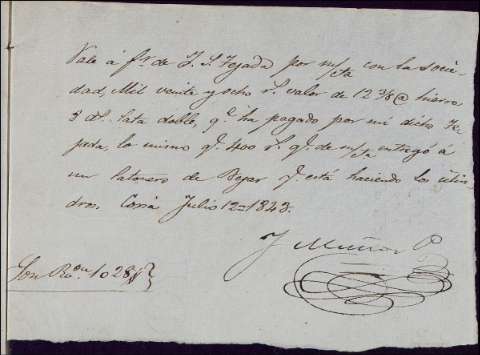 Vale á fr. de J. S. Tejada por m/cta con la socie-
dad, Mil veinte y ocho rs. valor de 12 3/8 @ hierro
y lata doble, qe. ha pagado por mi dicho Te-
jada, lo mismo qe. 400 rs. qe. de m/cta entregó á
un latonero de Bejar qe. está haciendo los cilin-
dros. Coria Julio 12 = 1843.
J Muñoz P
Son Rs. on. 1028